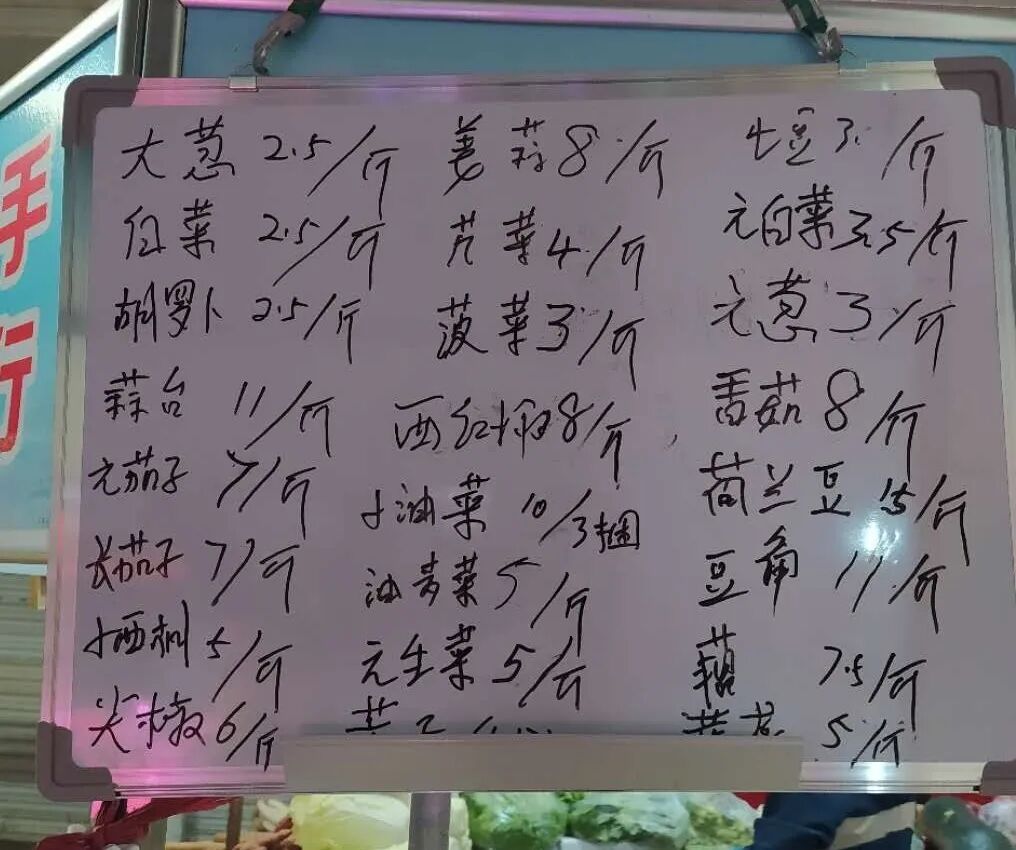 手
行
大葱 2.5/斤
白菜 2.5/斤
胡罗卜 2.5/斤
蒜台 11/斤
元茄子 7/斤
长茄子 7/斤
小西利 5/斤
尖椒 6/斤
姜 8/斤
芹菜 4/斤
菠菜 3/斤
西红柿 8/斤
小油菜 10/3捆
油青菜 5/斤
元生菜 5/斤
土豆 3/斤
元白菜 3.5/斤
元葱 3/斤
番茄 8/斤
荷兰豆 15/斤
豆角 11/斤
藕 7.5/斤
5/斤